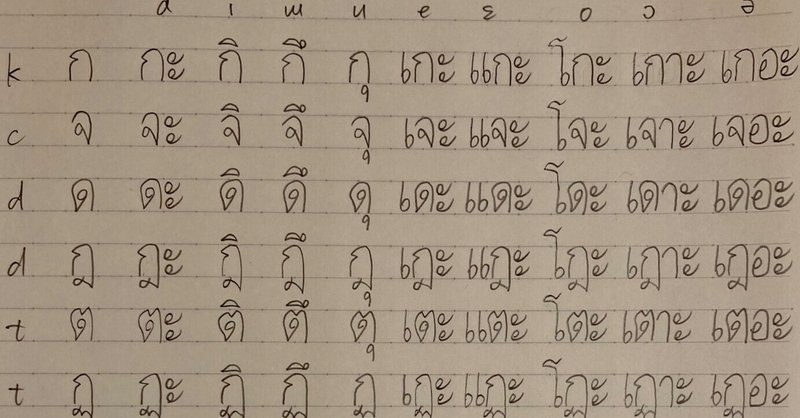 a i ɯ u e ɛ o ɔ ə
k ก กะ กิ กึ กุ เกะ แกะ โกะ เกาะ เกอะ
c จ จะ จิ จึ จุ เจะ แจะ โจะ เจาะ เจอะ
d ด ดะ ดิ ดึ ดุ เดะ แดะ โดะ เดาะ เดอะ
d ฎ ฎะ ฎิ ฎึ ฎุ เฎะ แฎะ โฎะ เฎาะ เฎอะ
t ต ตะ ติ ตึ ตุ เตะ แตะ โตะ เตาะ เตอะ
t ฏ ฏะ ฏิ ฏึ ฏ เฏะ แฏะ โฏะ เฏาะ เฏอะ